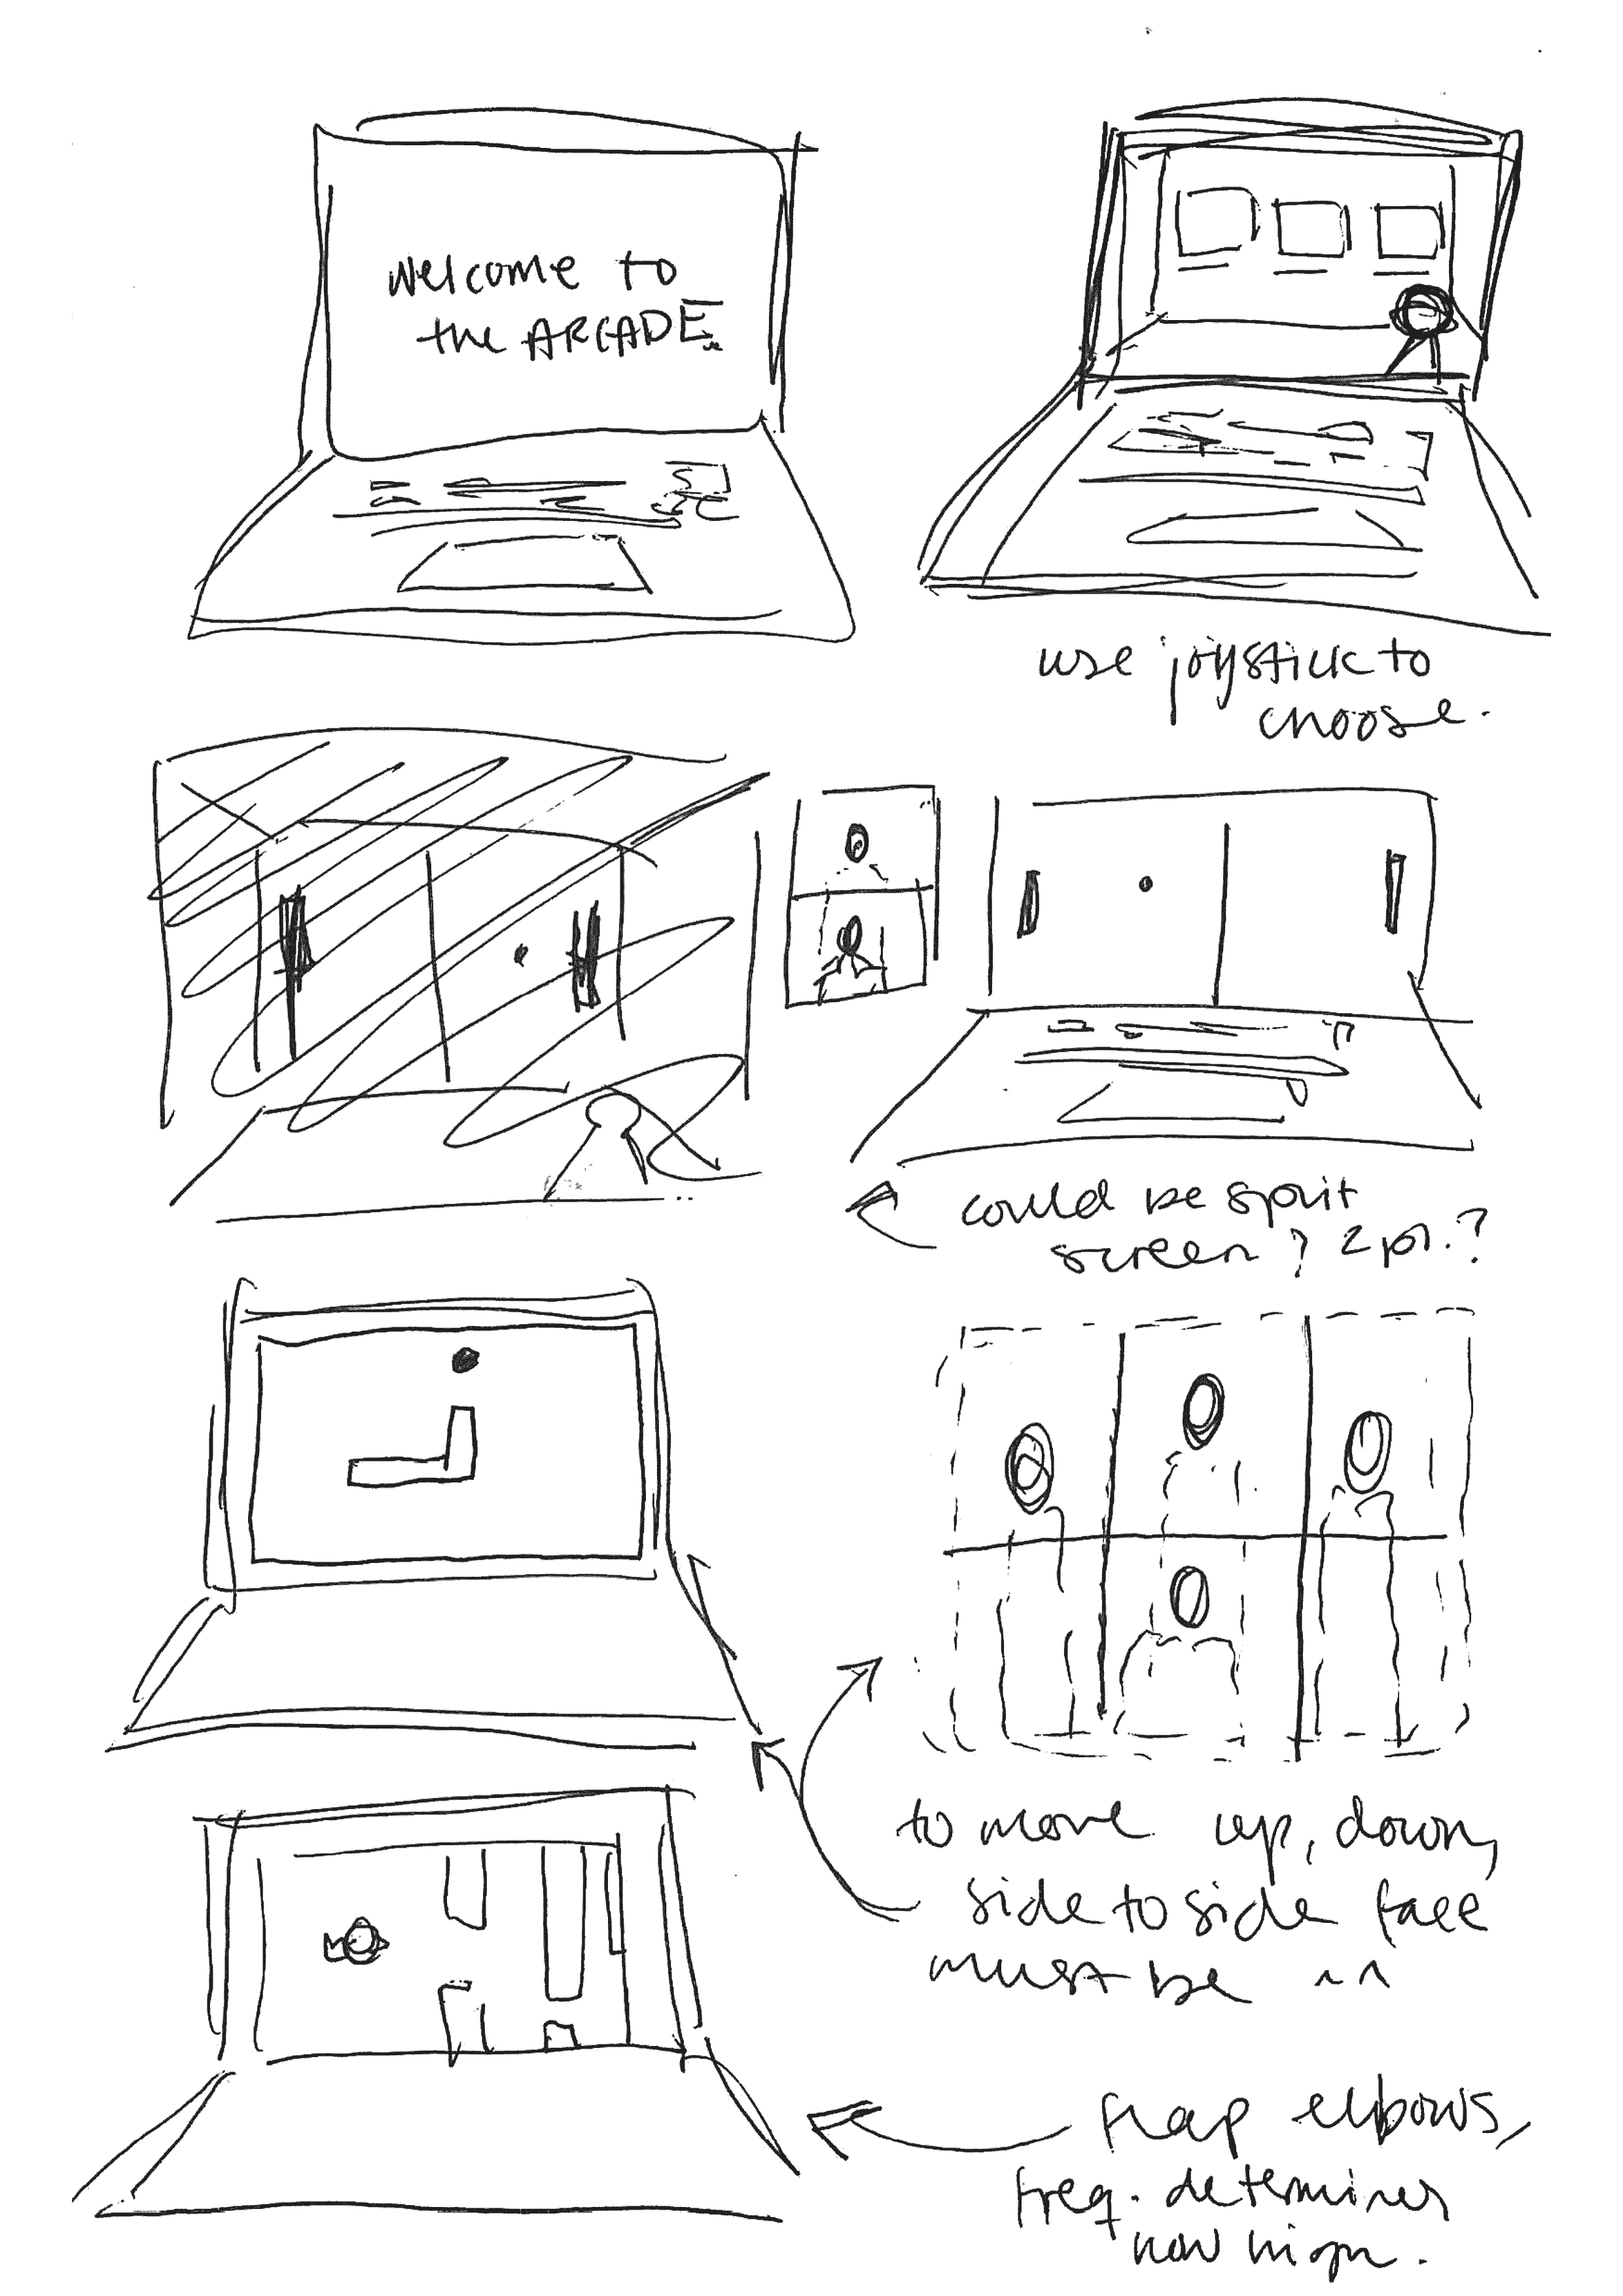 Welcome to
the ARCADE
use joystick to
choose.
could be split
screen? 2 pl.?
to move up, down,
side to side face
must be
flap elbows,
freq. determines
how high.